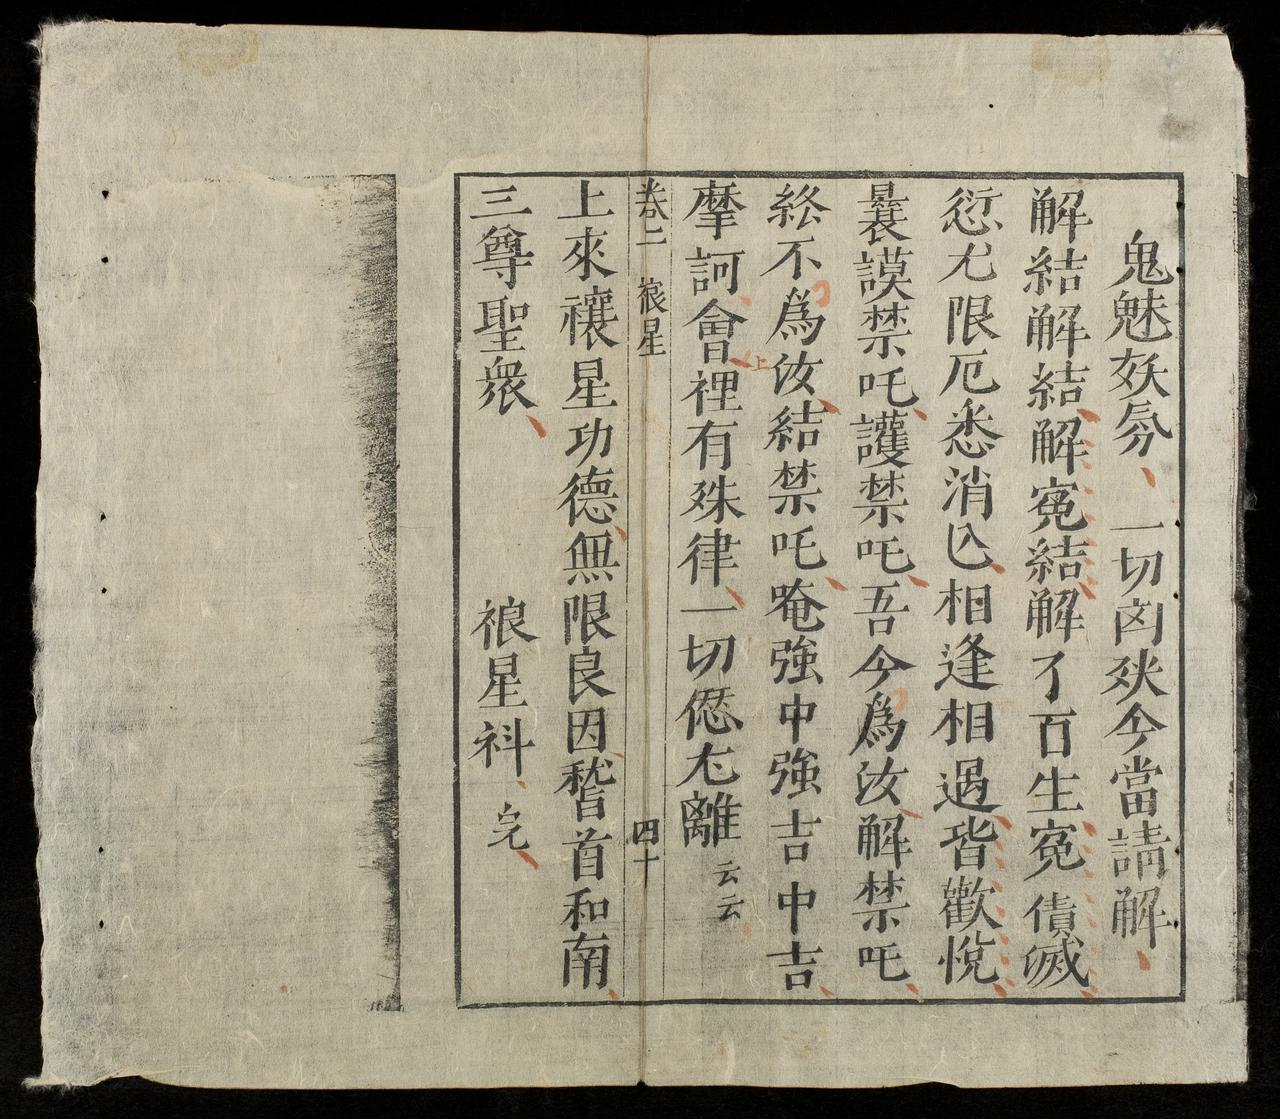 鬼魅妖氛一切凶殃今當請解
解結解結解寃結解了百生寃債滅
愆尤限厄悉消亾相逢相遇皆歡悅
曩謨禁吒護禁吒吾今爲汝解禁吒
終不爲汝結禁吒唵強中強吉中吉
摩訶會裡有殊律一切愆尤離云云
卷二 𥘺星 四十
上來禳星功德無限良因稽首和南
三尊聖衆 𥘺星科 完
上